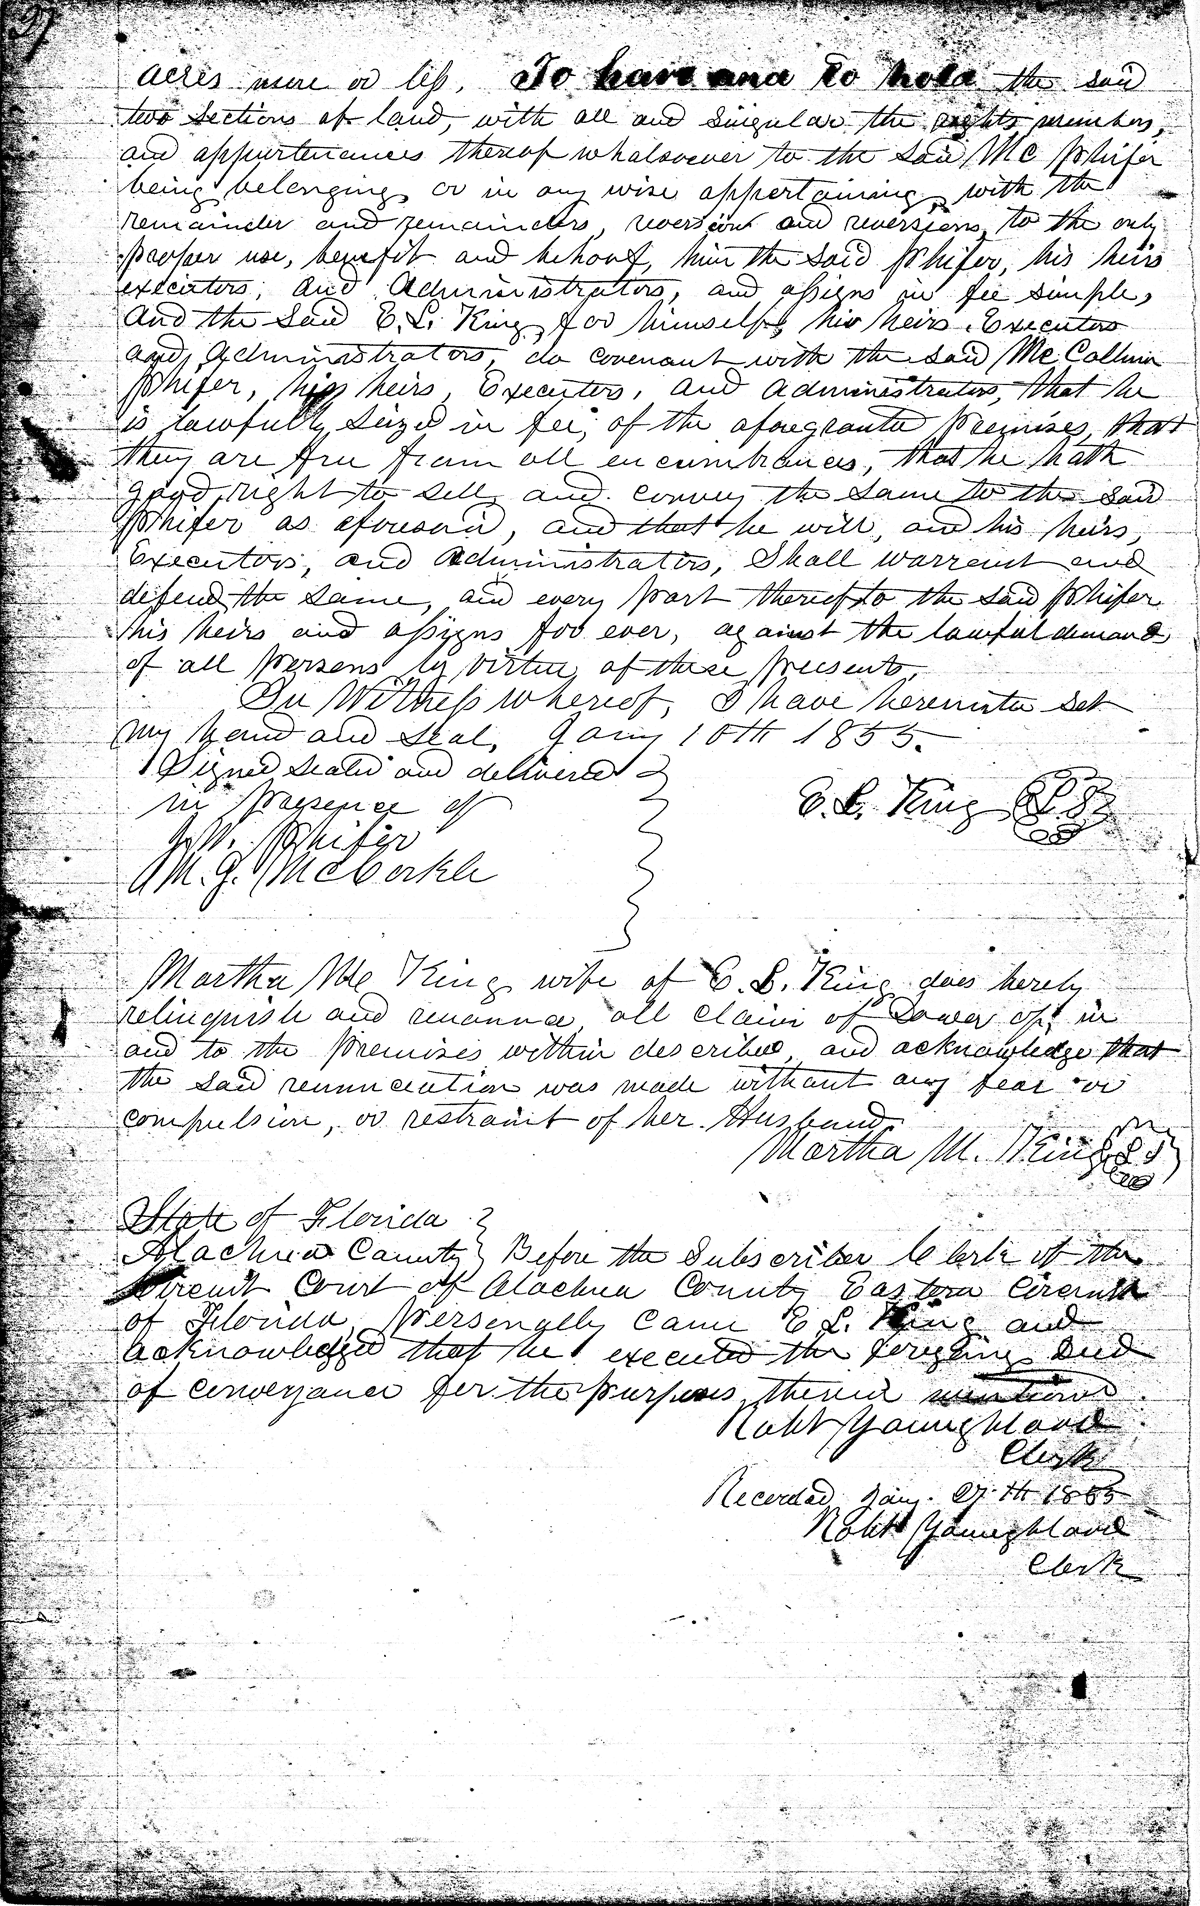 97
acres more or less. To have and to hold the said
two sections of land, with all and singular the rights, members,
and appurtenances thereof whatsoever to the said Mc Phifer
being belonging or in any wise appertaining, with the
remainder and remainders, reversion and reversions, to the only
proper use, benefit and behoof, him the said Phifer, his heirs
executors, and Administrators, and assigns in fee simple,
And the said E. L. King, for himself, his heirs, Executors
and, Administrators, do covenant with the said Mc Collum
Phifer, his heirs, Executors, and administrators, that he
is lawfully seized in fee, of the aforegranted Premises, that
they are free from all encumbrances, that he hath
good right to sell and convey the same to the said
Phifer as aforesaid, and that he will, and his heirs,
Executors, and administrators, shall warrant and
defend the same, and every part thereof to the said Phifer
his heirs and assigns for ever, against the lawful demands
of all persons by virtue of these presents.
In Witness whereof, I have hereunto set
my hand and seal, Jany 10th 1855.
Signed sealed and delivered
in presence of
E. L. King
Phifer
M. J. McCorkle
Martha Mc King wife of E. L. King does herely
relinquish and renounce all claim of Dower of, in
and to the premises within described, and acknowledge that
the said renunciation was made without any fear or
compulsion, or restraint of her Husband
Martha M. King
State of Florida
Alachua County Before the Subscriber Clerk of the
Circuit Court of Alachua County Eastern Circuit
of Florida, Personally came E L. King and
acknowledged that he executed the foregoing Deed
of conveyance for the purposes therein mentioned.
Robt Youngblood
Clerk
Recorded Jany. 27th 1855
Robt Youngblood
Clerk